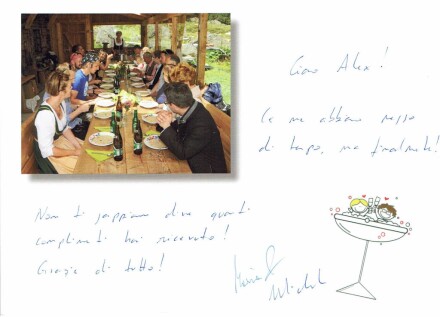 Ciao Alex!
Ce ne abbiamo messo
di tempo, ma finalmente!
Non ti sappiamo dire quanti
complimenti hai ricevuto!
Grazie di tutto!
Michel